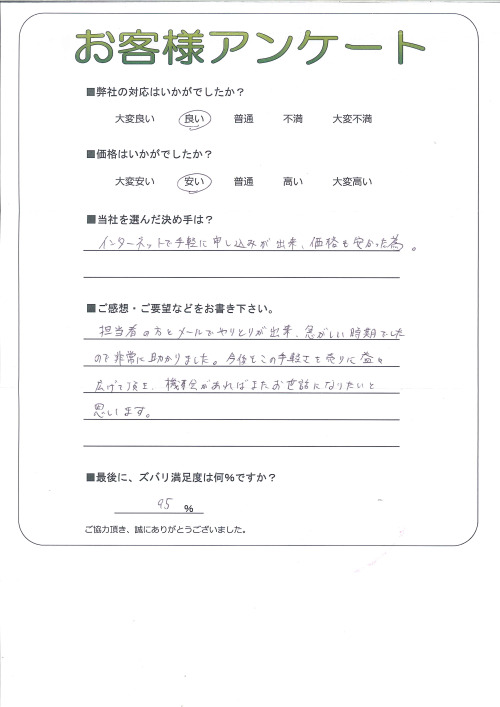 お客様アンケート
■弊社の対応はいかがでしたか?
大変良い 良い 普通 不満 大変不満
■価格はいかがでしたか?
大変安い 安い 普通 高い 大変高い
■当社を選んだ決め手は?
インターネットで手軽に申し込みが出来、価格も安かった為。
■ご感想・ご要望などをお書き下さい。
担当者の方とメールでやりとりが出来、忙がしい時期でした
ので非常に助かりました。今後もこの手軽さを売りに益々
広げて頂き、機会があればまたお世話になりたいと
思います。
■最後に、ズバリ満足度は何%ですか?
95 %
ご協力頂き、誠にありがとうございました。